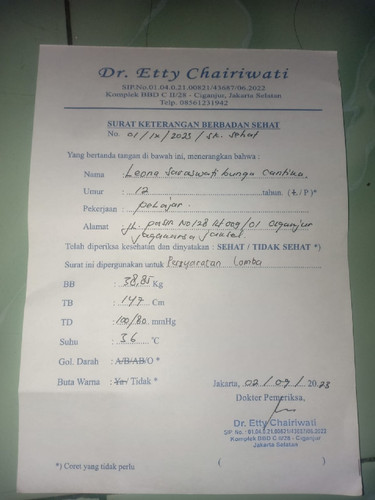 Dr. Etty Chairiwati
SIP.No.01.04.0.21.00821/43687/06.2022
Komplek BBD C II/28 - Ciganjur, Jakarta Selatan
Telp. 08561231942
SURAT KETERANGAN BERBADAN SEHAT
No. 01/IX/2023/SK. Sehat
Yang bertanda tangan di bawah ini, menerangkan bahwa :
Nama : Leona Saraswati bunga Cantika.
Umur : 12 tahun. (L / P )*
Pekerjaan : pelajar.
Alamat : JL. No 128 Rt 009/01 Ciganjur
jagakarsa jaksel.
Telah diperiksa kesehatan dan dinyatakan : SEHAT / TIDAK SEHAT *)
Surat ini dipergunakan untuk : Persyaratan Lomba
BB : 38,85 Kg
TB : 147 Cm
TD : 100/80 mmHg
Suhu : 36 °C
Gol. Darah : A/B/AB/O *
Buta Warna : Ya/ Tidak *
Jakarta, 02/09/2023
Dokter Pemeriksa,
Dr. Etty Chairiwati
SIP. No. : 01.04.0.21.00821/43687/06.2022
Komplek BBD C II/28 - Ciganjur
Jakarta Selatan
*) Coret yang tidak perlu
( )